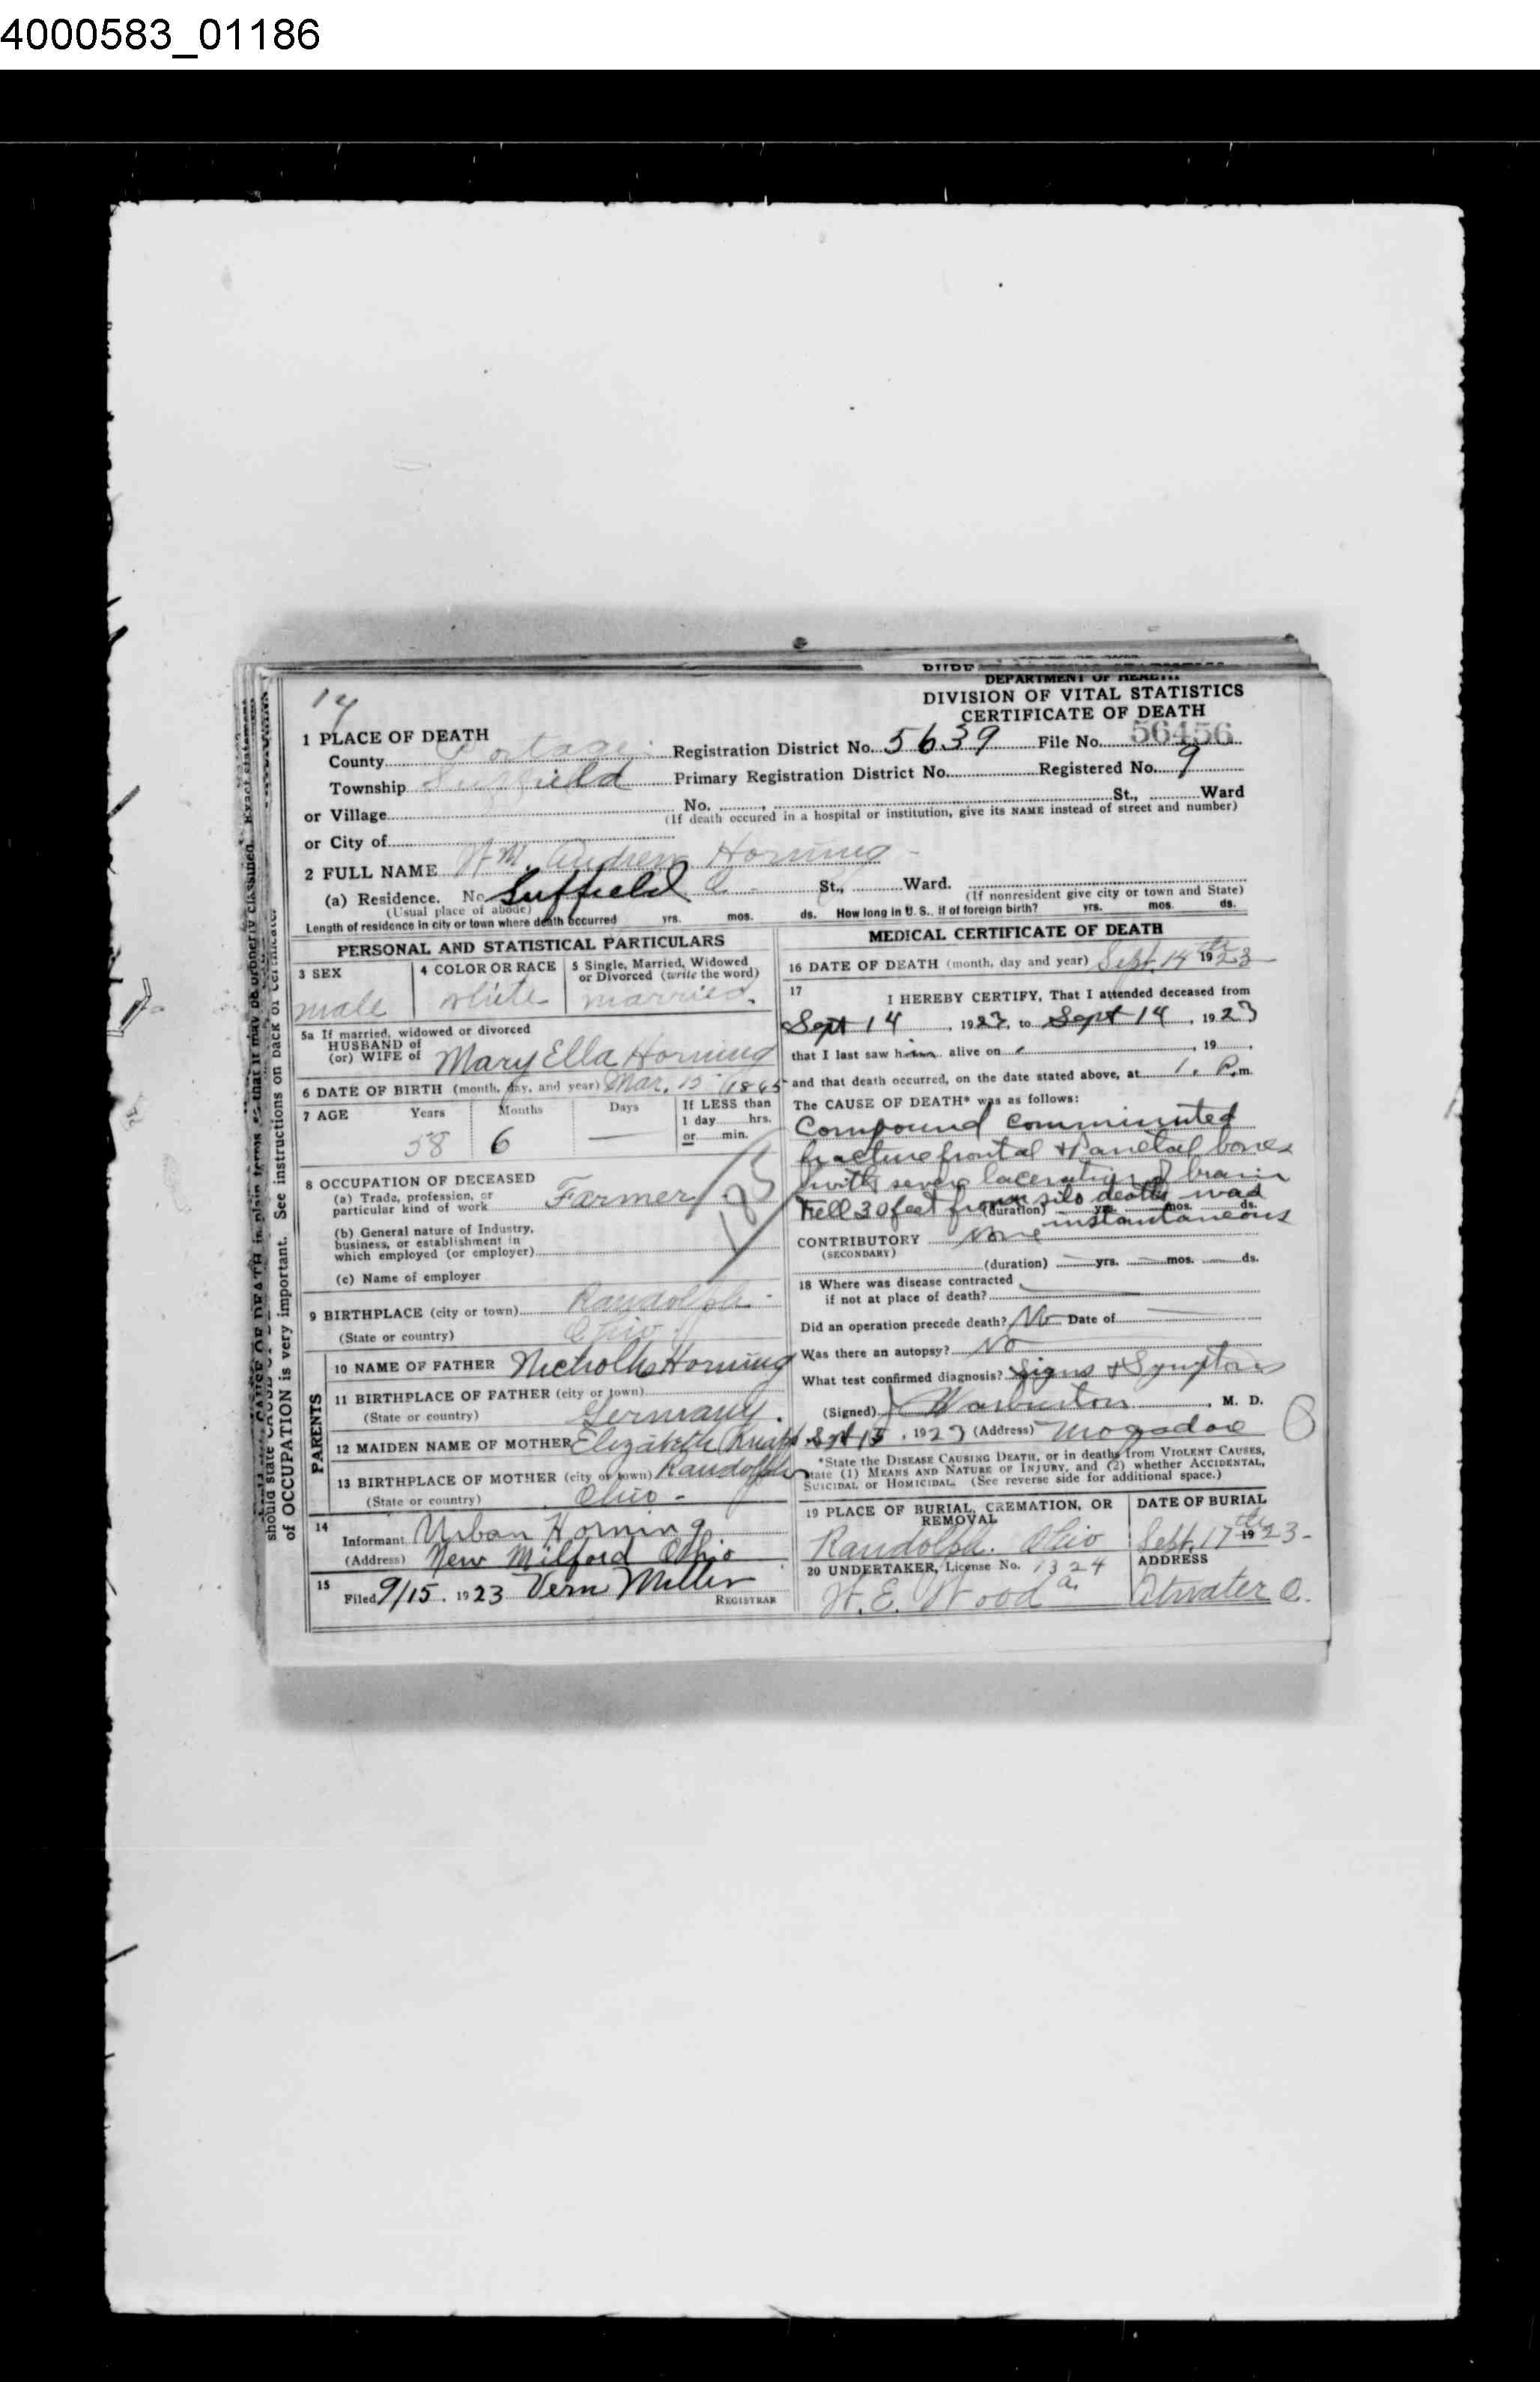 4000583_01186
DEPARTMENT OF HEALTH
DIVISION OF VITAL STATISTICS
CERTIFICATE OF DEATH
14
1 PLACE OF DEATH
County Portage Registration District No. 5639 File No. 56456
Township Suffield Primary Registration District No. Registered No. 9
or Village No. St., Ward
(If death occured in a hospital or institution, give its NAME instead of street and number)
or City of
2 FULL NAME Wm. Andrew Horning
(a) Residence. No. Suffield O. St., Ward.
(Usual place of abode) (If nonresident give city or town and State)
Length of residence in city or town where death occurred yrs. mos. ds. How long in U. S., if of foreign birth? yrs. mos. ds.
PERSONAL AND STATISTICAL PARTICULARS
3 SEX 4 COLOR OR RACE 5 Single, Married, Widowed
or Divorced (write the word)
male white married.
5a If married, widowed or divorced
HUSBAND of
(or) WIFE of Mary Ella Horning
6 DATE OF BIRTH (month, day, and year) Mar. 15 1865
7 AGE Years Months Days If LESS than
1 day hrs.
or min.
58 6 —
8 OCCUPATION OF DECEASED
(a) Trade, profession, or
particular kind of work Farmer
(b) General nature of Industry,
business, or establishment in
which employed (or employer)
(c) Name of employer
9 BIRTHPLACE (city or town) Randolph
(State or country) Ohio.
PARENTS
10 NAME OF FATHER Nicholls Horning
11 BIRTHPLACE OF FATHER (city or town)
(State or country) Germany.
12 MAIDEN NAME OF MOTHER Elizabeth Knapp
13 BIRTHPLACE OF MOTHER (city or town) Randolph
(State or country) Ohio -
14
Informant Urban Horning
(Address) New Milford Ohio
15
Filed 9/15, 1923 Vern Miller
REGISTRAR
MEDICAL CERTIFICATE OF DEATH
16 DATE OF DEATH (month, day and year) Sept. 14th 1923
17 I HEREBY CERTIFY, That I attended deceased from
Sept 14, 1923, to Sept 14, 1923
that I last saw him alive on , 19
and that death occurred, on the date stated above, at 1. P.m.
The CAUSE OF DEATH* was as follows:
Compound comminuted
fracture frontal & Parietal bones
with severe laceration of brain
Fell 30 feet from silo death was
(duration) yrs. mos. ds.
instantaneous
CONTRIBUTORY None
(SECONDARY)
(duration) yrs. mos. ds.
18 Where was disease contracted
if not at place of death?
Did an operation precede death? No Date of
Was there an autopsy? No
What test confirmed diagnosis? Signs & Symptoms
(Signed) J Warburton, M. D.
Sept 15, 1923 (Address) Mogadore
*State the DISEASE CAUSING DEATH, or in deaths from VIOLENT CAUSES,
state (1) MEANS AND NATURE OF INJURY, and (2) whether ACCIDENTAL,
SUICIDAL or HOMICIDAL. (See reverse side for additional space.)
19 PLACE OF BURIAL, CREMATION, OR
REMOVAL DATE OF BURIAL
Randolph. Ohio Sept. 17th 1923-
20 UNDERTAKER, License No. 1324 a. ADDRESS
H. E. Wood Atwater O.
should state CAUSE OF DEATH in plain terms so that it may be properly classified. Exact statement
of OCCUPATION is very important. See instructions on back of certificate.